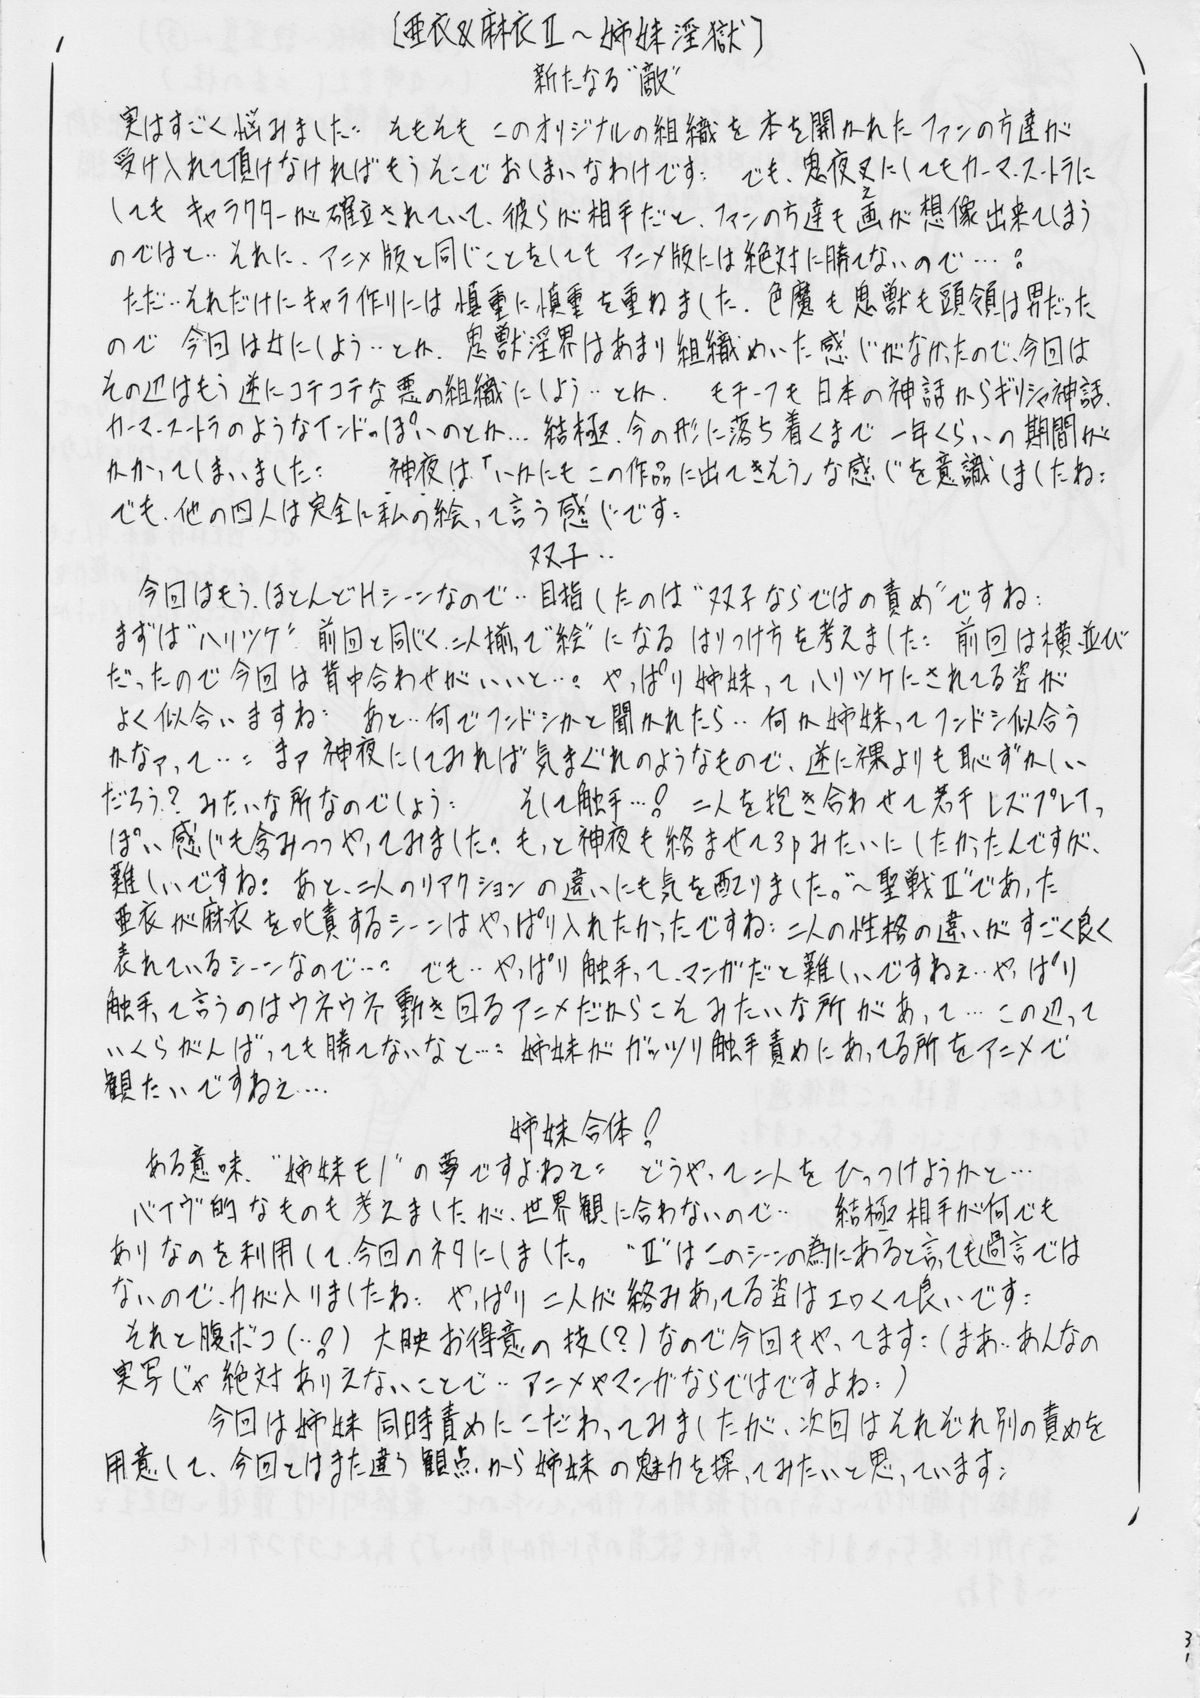 [亜衣&麻衣Ⅱ～姉妹淫獄]
新たなる"敵"
実はすごく悩みました… そもそも このオリジナルの組織を 本を開かれた ファンの方達が
受け入れて頂けなければもうそこで おしまいなわけです… でも、鬼夜叉にしてもカーマ・スートラに
しても キャラクターが 確立されていて、彼らが相手だと、ファンの方達も画が 想像出来てしまう
え
のではと‥それに、アニメ版と同じことをしても アニメ版には絶対に勝てないので…。
ただ‥それだけにキャラ作りには 慎重に慎重を重ねました。色魔も鬼獣も頭領は男だった
ので 今回は女にしよう‥とか、鬼獣淫界はあまり組織めいた感じがなかったので、今回は
その辺はもう逆にコテコテな悪の組織にしよう‥とか、 モチーフも 日本の神話からギリシャ神話、
カーマ・スートラのようなインドっぽいのとか… 結極、今の形に落ち着くまで 一年くらいの期間が
かかってしまいました… 神夜は「いかにも この作品に出てきそう」な感じを意識しましたね…
でも、他の四人は完全に私の絵って言う感じです…
双子‥
今回はもう、ほとんどHシーンなので‥目指したのは"双子ならではの責め"ですね…
まずは"ハリツケ" 前回と同じく、二人揃って"絵"になる はりつけ方を考えました… 前回は横並び
だったので今回は 背中合わせがいいと…。 やっぱり姉妹ってハリツケにされてる姿が
よく似合いますね… あと‥何でフンドシかと聞かれたら‥何か姉妹ってフンドシ似合う
かなァって…… まァ神夜にしてみれば気まぐれのようなもので、逆に裸よりも恥ずかしい
だろう？みたいな所なのでしょう… そして触手…！ 二人を抱き合わせて若干レズプレイっ
ぽい感じも含みつつやってみました。もっと神夜も絡ませて3pみたいにしたかったんですが、
難しいですね… あと、二人のリアクションの違いにも気を配りました。"～聖戦Ⅱ"であった
亜衣が麻衣を叱責するシーンはやっぱり入れたかったですね… 二人の性格の違いがすごく良く
表れているシーンなので…… でも‥やっぱり触手って、マンガだと難しいですねぇ‥やっぱり
触手って言うのはウネウネ動き回るアニメだからこそみたいな所があって… この辺って
いくらがんばっても勝てないなと…… 姉妹がガッツリ触手責めにあってる所をアニメで
観たいですねぇ…
姉妹合体！
ある意味、"姉妹モノ"の夢ですよねぇ… どうやって二人を ひっつけようかと…
バイヴ的なものも考えましたが、世界観に合わないので‥ 結極相手が何でも
ありなのを利用して、今回のネタにしました。 "Ⅱ"はこのシーンの為にあると言っても過言では
ないので、力が入りましたね… やっぱり 二人が絡みあってる姿はエロくて良いです…
それと腹ボコ(‥！) 大映お得意の技(？)なので今回もやってます…(まあ‥あんなの
実写じゃ絶対ありえないことで‥アニメやマンガならではですよね…)
今回は姉妹同時責めにこだわってみましたが、次回はそれぞれ別の責めを
用意して、今回とはまた違う観点から姉妹の魅力を探ってみたいと思っています…
31